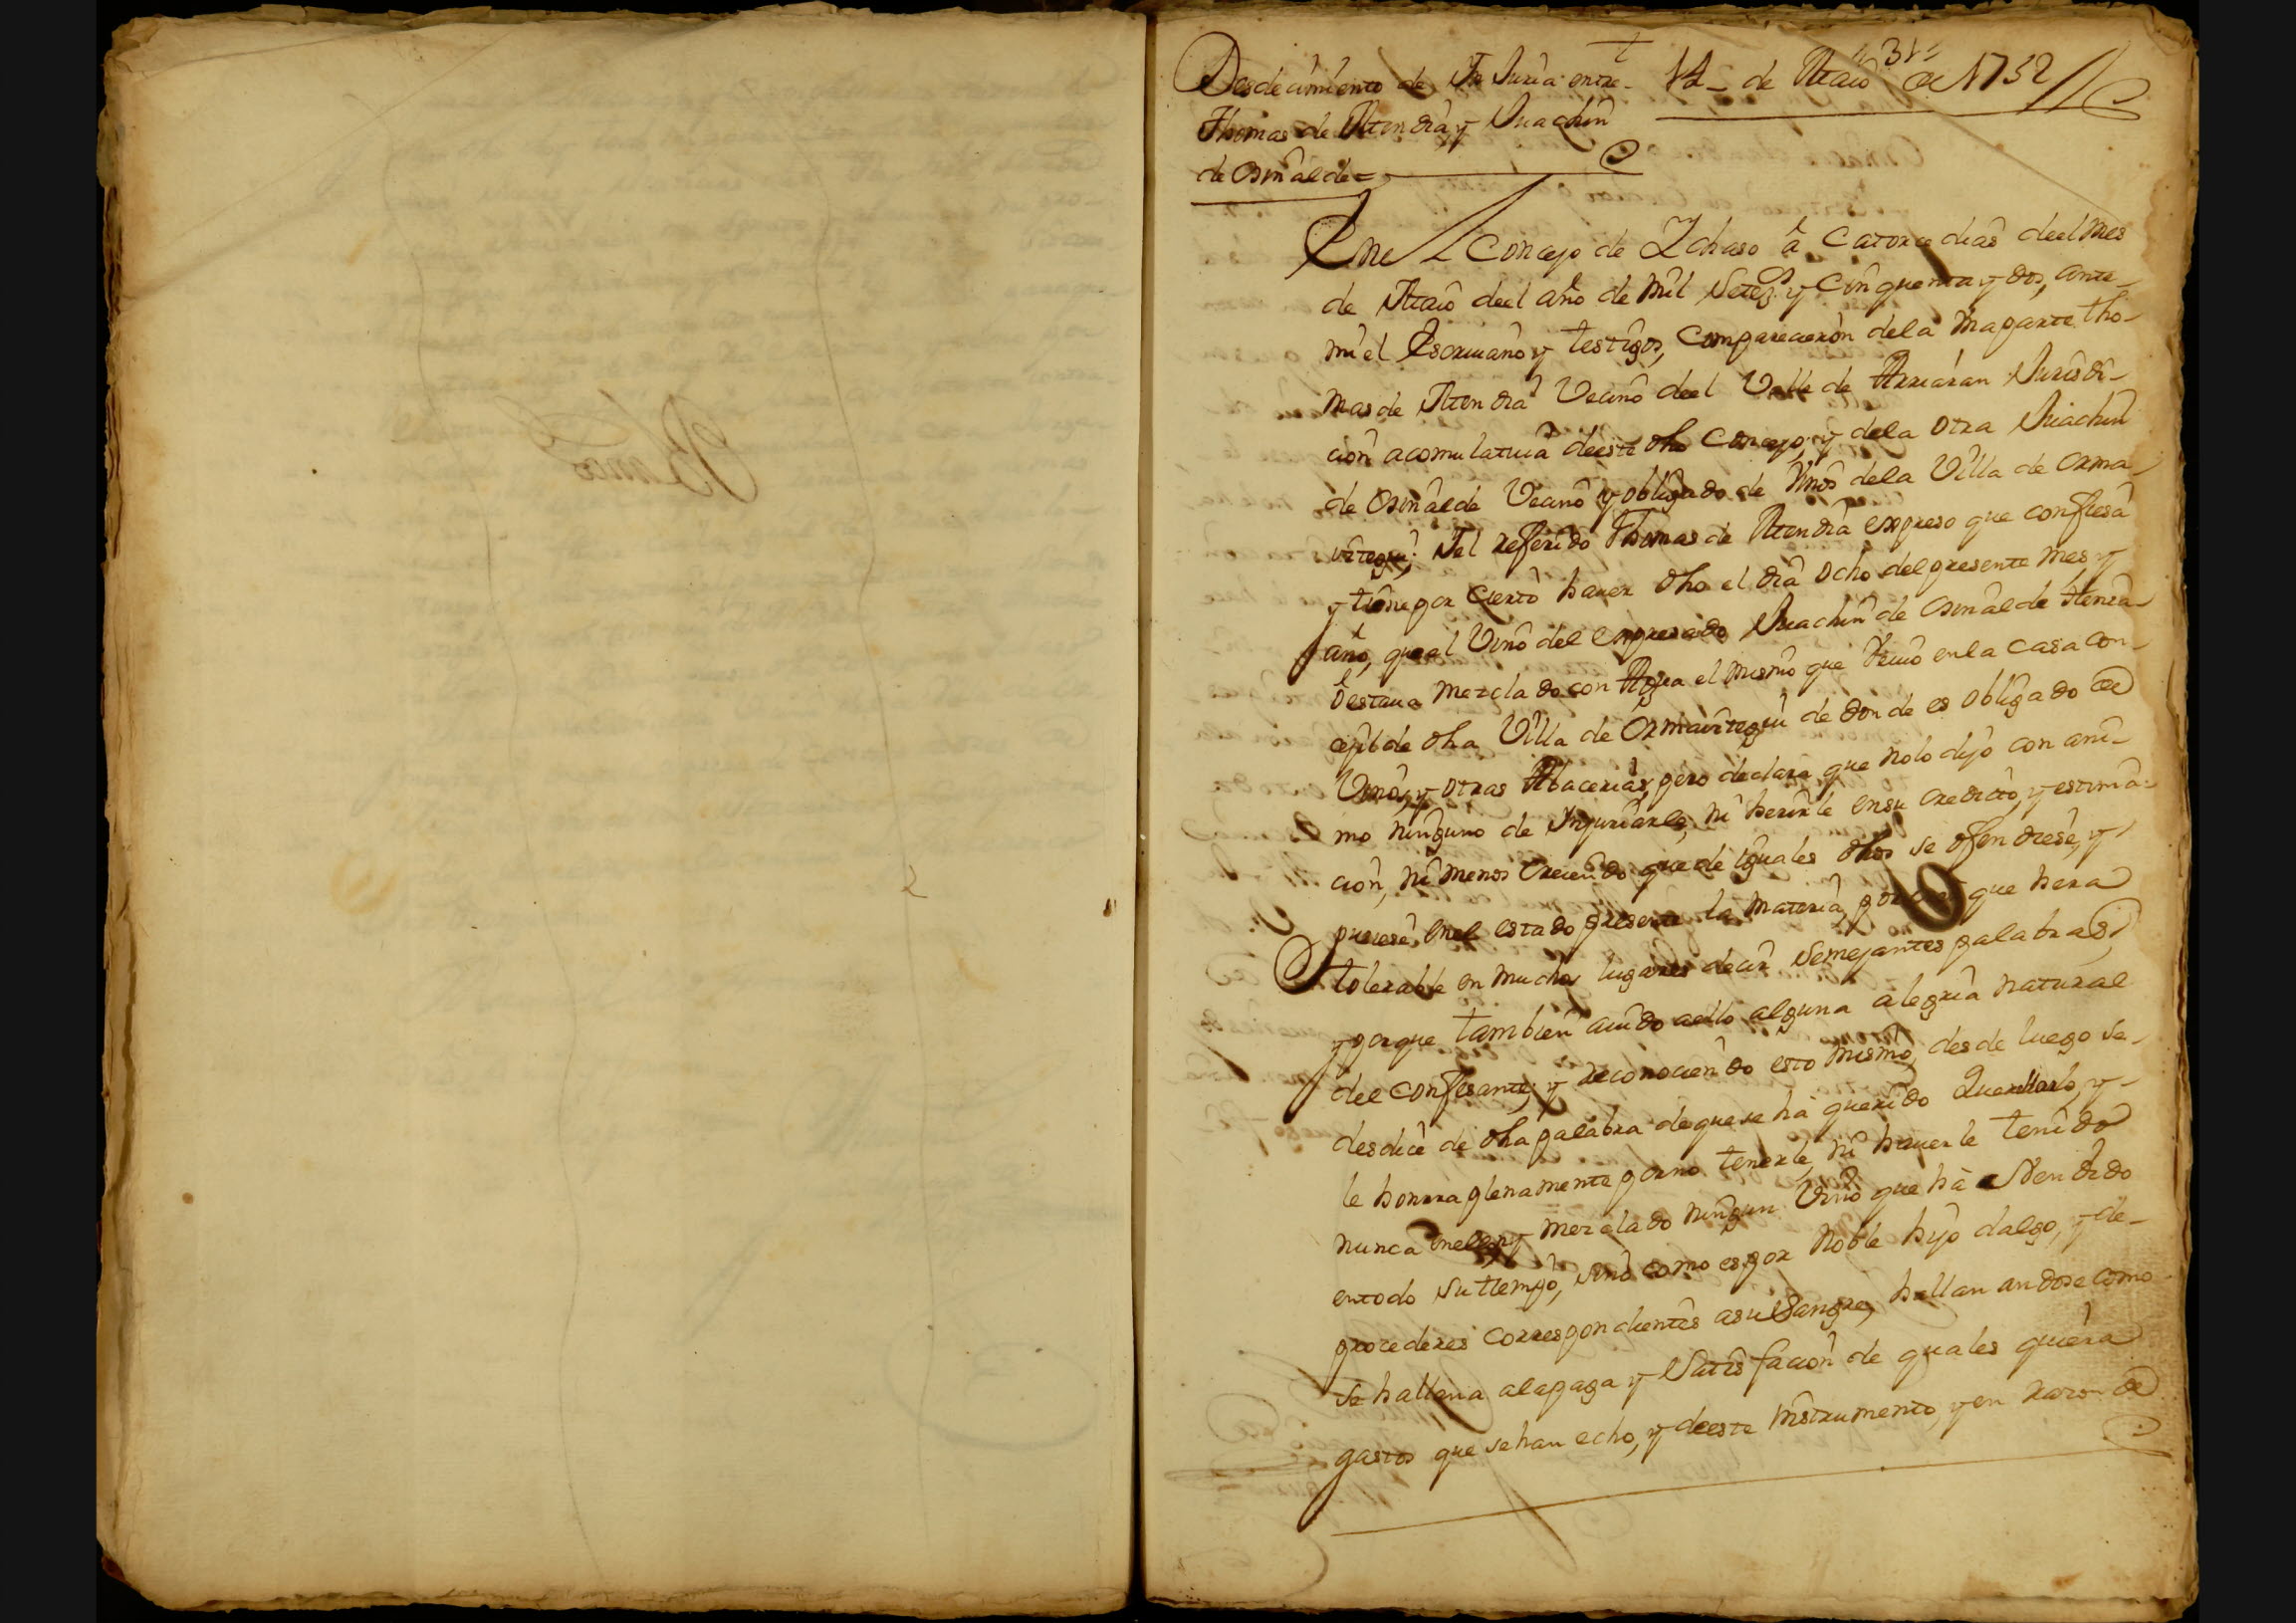 Desdecimiento de Injuria entre
Thomas de Mendia, y Juachin
de Osinalde=
14 de Maio de 1752
En el Concejo de Ichaso â Catorce dias deel mes
de Maio deel año de mil Setez.s y Cinquenta y dos, ante
mi el Escriuano y testigos, Comparecieron dela una parte Tho-
mas de Mendia Vecino deel Valle de Arriaran Jurisdi-
cion acomulatiua de este dho Concejo; y dela otra Juachin
de Osinalde Vecino y obligado de Vinos dela Villa de Orma-
iztegui; Y el referido Thomas de Mendia expreso que confiesa
y tiene por cierto hauer dho el dia ocho del presente mes, y
año, que el Vino del expresado Juachin de Osinalde
estaua mezclado con Agua el mismo que tenia en la casa con-
cejil de dha Villa de Ormaiztegui de donde es obligado de
Vinos, y otras Abacerias, pero declara que nolo dijo con ani-
mo ninguno de Injuriarle, ni herirle ensu credicto, y estima-
cion, ni menos creiendo que de iguales dhos se ofendiese, y
pusiese, enel estado presente la materia, por que hera
tolerable en muchos lugares decir Semejantes palabras,
y porque tambien aiudo aello alguna alegria natural
del confesante; y reconociendo esto mismo, desde luego se
desdice de dha palabra de que se hà querido Querellarlo, y
le honrra plenamente por no tenerle, ni hauerle tenido
nunca mezclado ningun Vino que hà Vendido
entodo su tiempo, sino como es por Noble hijo dalgo, y de
procederes correspondientes asu Sangre, hallanandose como
se hallana ala paga y Satisfacion de quales quiera
gastos que se han echo, y deeste instrumento, y en razon de